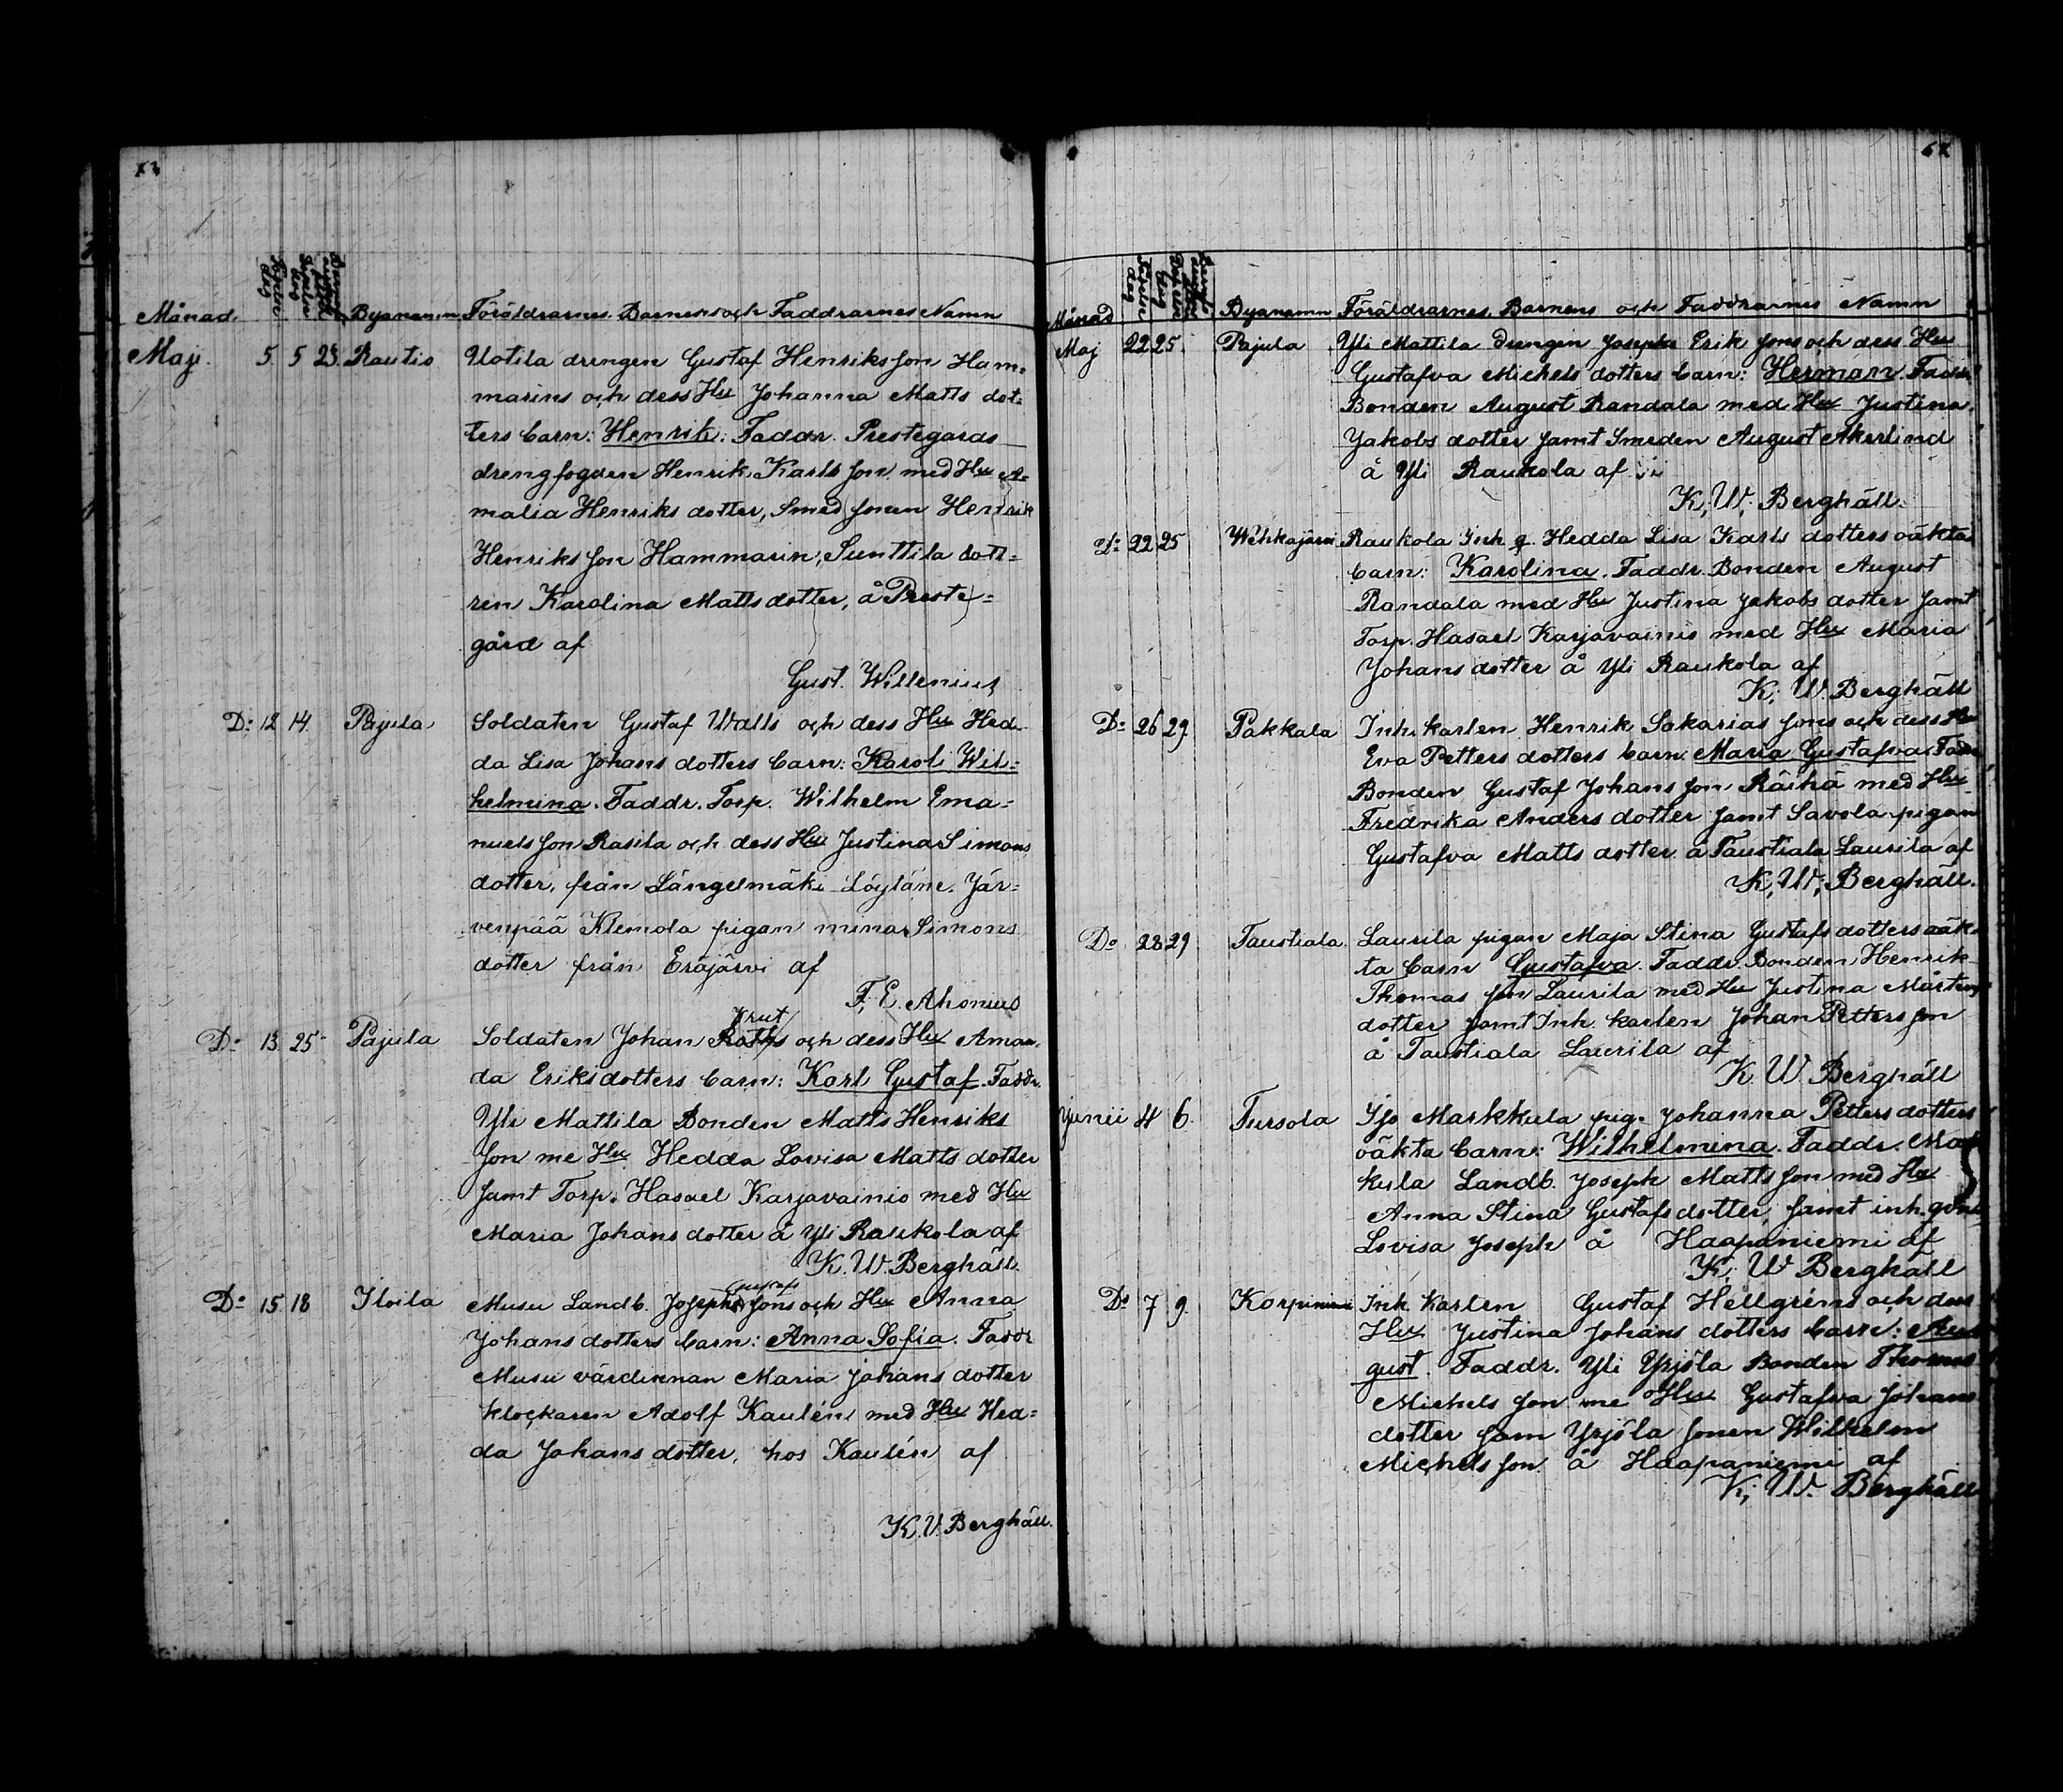 Månad. Byanamn Föräldrarnes. Barnens och Faddrarnes Namn
Maji. 5. 5 23. Rautio Uotila drengen Gustaf Henriksson Ham=
marins och dess Hu Johanna Matts dot=
ters barn: Henrik. Faddr. Prestegards
drengfogden Henrik Karlsson med Hu A=
malia Henriks dotter, Smedsonen Henrik
Henriksson Hammarin, Sunttila dott=
ren Karolina Mattsdotter, å Preste=
gård af
Gust. Willenius
Do 12 14. Pajula Soldaten Gustaf Walls och dess Hu Hed=
da Lisa Johans dotters barn: Karol. Wil=
helmina. Faddr. Torp. Wilhelm Ema=
nuelsson Rasila och dess Hu Justina Simons
dotter, från Längelmäki Löytäne. Jär=
venpää Klemola pigan mina Simons
dotter från Eräjärvi af
F. E. Ahonius
Krut
Do 13 25 Pajula Soldaten Johan Roths och dess Hu Aman=
da Eriksdotters barn: Karl Gustaf. Faddr.
Yli Mattila Bonden Matts Henriks
son me Hu Hedda Lovisa Matts dotter
samt Torp. Hasael Karjavainio med Hu
Maria Johans dotter å Yli Raukola af
K. W. Berghäll.
Gustafs
Do 15 18 Iloila Musu Landb. Josephs sons och Hu Anna
Johans dotters barn: Anna Sofia. Faddr
Musu värdinnan Maria Johans dotter
klockaren Adolf Kaulén med Hu Hed=
da Johans dotter, hos Kaulén af
K. V. Berghäll.
Månad Byanamn Föräldrarnes. Barnens och Faddrarnes Namn
Maj 22 25. Pajula Yli Mattila drengen Josephs Erik sons och dess Hu
Gustafva Michels dotters barn: Herman. Faddr.
Bonden August Randala med Hu Justina
Jakobs dotter samt Smeden August Akerlind
å Yli Raukola af
K. W. Berghäll.
Do 22 25 Wehkajärvi Raukola Inh. q. Hedda Lisa Karls dotters oäkta
barn: Karolina. Faddr. Bonden August
Randala med Hu Justina Jakobs dotter samt
Torp. Hasael Karjavainio med Hu Maria
Johans dotter å Yli Raukola af
K. W. Berghäll
Do 26 29 Pakkala Inh. karlen Henrik Sakarias sons och dess Hu
Eva Petters dotters barn. Maria Gustafva. Faddr
Bonden Gustaf Johansson Räihä med Hu
Fredrika Anders dotter samt Savola pigan
Gustafva Matts dotter å Taustiala Laurila af
K. W. Berghäll.
Do 28 29 Taustiala. Laurila pigan Maja Stina Gustafs dotters oäk=
ta barn Gustafva. Faddr. Bonden Henrik
Thomas son Laurila med Hu Justina Mårtens
dotter samt Inh. karlen Johan Pettersson
å Taustiala Laurila af
K. W Berghäll
Junii 4 6. Tursola Yjo Markkula pig. Johanna Petters dotters
oäkta barn: Wilhelmina. Faddr.
kula Landb. Joseph Mattsson med Hu
Anna Stina Gustafs dotter, samt inh.
Lovisa Joseph å Haapaniemi af
K. W Berghäll
Do 7 9. Korpiniemi Inh. Karlen Gustaf Hellgréns och dess
Hu Justina Johans dotters barn: Au
gust. Faddr. Yli Yrjölä Bonden Thomas
Michels son me Hu Gustafva Johans
dotter sam Yrjölä sonen Wilhelm
Michels son å Haapaniemi af
K. W. Berghäll